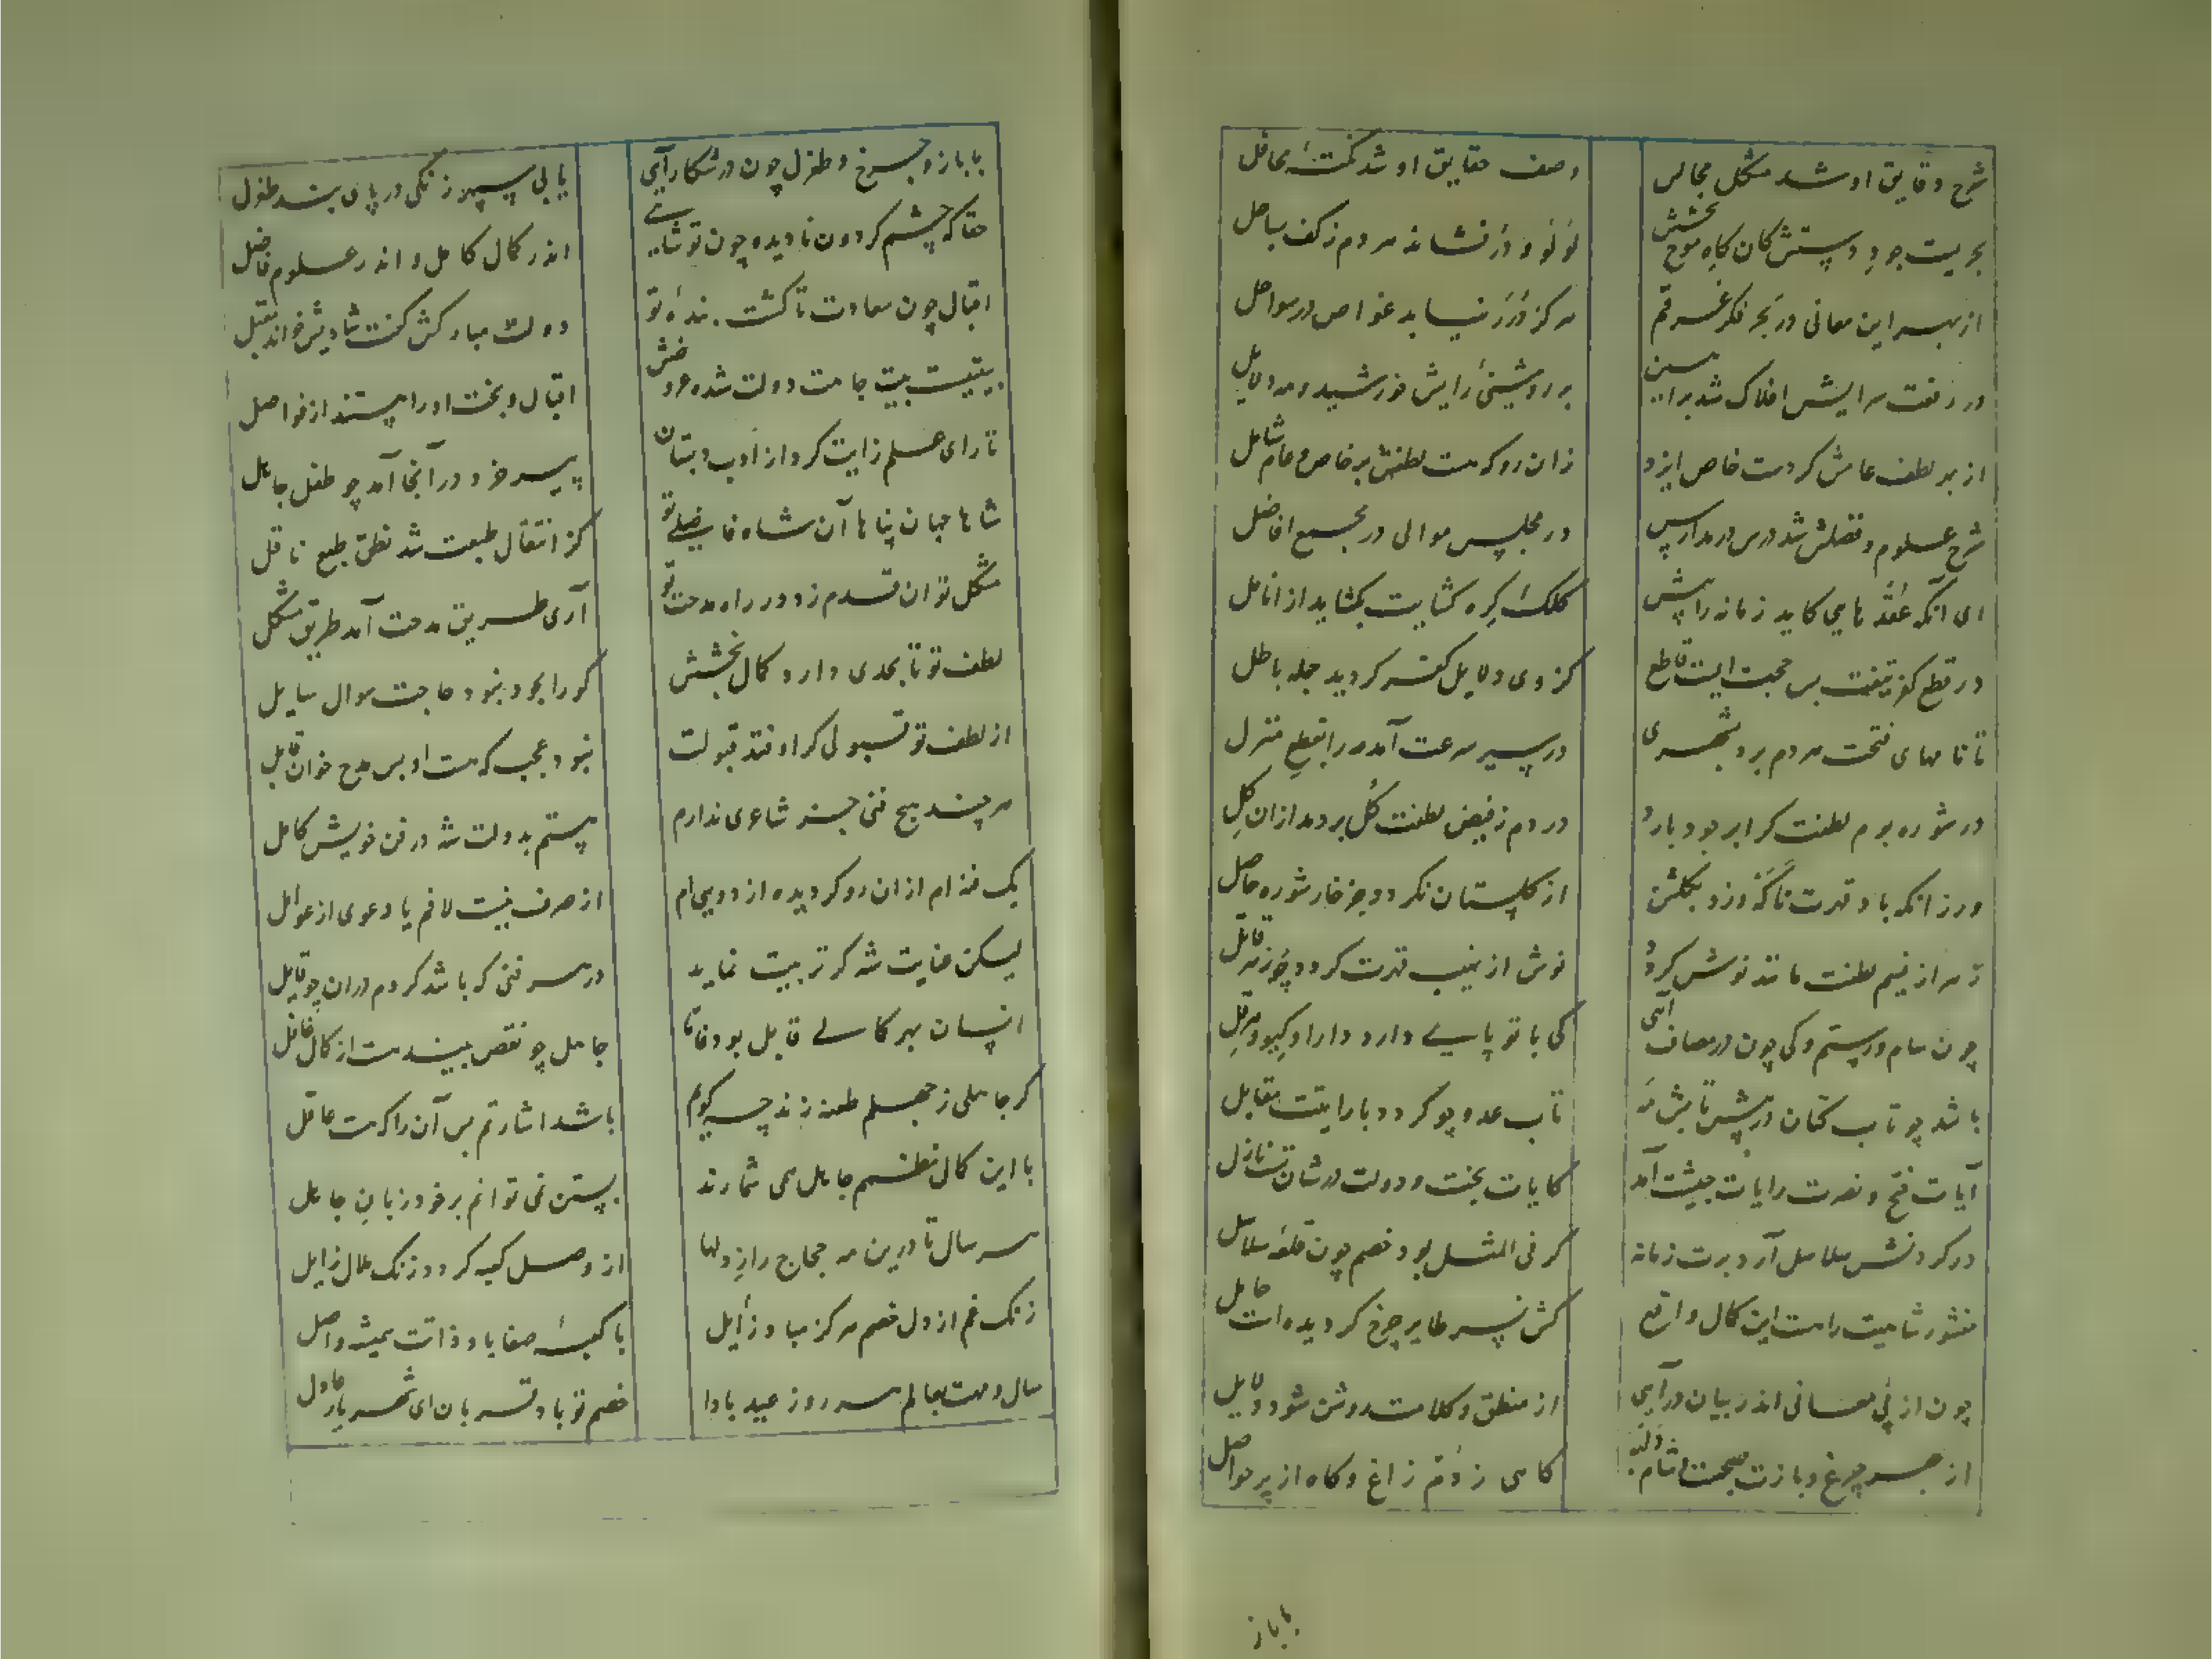 شرح دقایق او شد مشکل مجالس وصف حقایق او شد نکتهٔ محافل
بحریست جود دستش کان گاه موج بخشش لؤلؤ و در فشاند مردم ز کف بساحل
از بهر این معانی در بحر فکر غرقم هرگز درر نیابد غواص در سواحل
در رفعت سرایش افلاک شد مبرهن بر روشنیٔ رایش خورشید و مه دلایل
از بر لطف عامش کردست خاص ایزد زان رو که هست لطفش بر خاص و عام شامل
شرح علوم و فضلش شد درس در مدارس در مجلس موالی در مجمع افاضل
ای آنکه عقدهایی کاید زمانه را پیش کلک گره کشایت بکشاید از انامل
در قطع کفر تیغت بس حجت است قاطع کز وی دلایل کفر کردید جمله باطل
تا نامهای فتحت مردم برد بشهری در سیر سرعت آمد مه را بقطع منزل
در شوره بوم لطفت کر ابر جود بارد در دم ز فیض لطفت گل بردمد ازان گل
ور زانکه باد قهرت ناگه وزد بگلشن از گلستان نگردد جز خار شوره حاصل
زهر از نسیم لطفت مانند نوش گردد نوش از نهیب قهرت گردد چو زهر قاتل
چون سام و رستم و کی چون در مصاف آیی کی با تو پای دارد دارا و گیو و هرقل
باشد چو تاب کتان در پیش تابش مه تاب عدو چو گردد با رایتت مقابل
آیات فتح و نصرت رایات جیشت آمد کایات بخت و دولت در شان تست نازل
در گردنش سلاسل آرد برت زمانه گر فی المثل بود خصم چون قلعهٔ سلاسل
منشور شاهیت راست این کمال واقع کش نسر طایر چرخ گردیده است حامل
چون از پی معانی اندر بیان درآیی از منطق و کلامت روشن شود دلایل
از چرغ و بازت صبحست و شام کاهی ز دم زاغ و گاه از پر حواصل
بباز
با باز و چرخ و طغرل چون در شکار آیی یابی سپهر زنگی در پای بند طغرل
حقا که چشم گردون نادیده چون تو شاهی اندر کمال کامل و اندر علوم فاضل
اقبال چون سعادت تا گشت بندهٔ تو دولت مبارکش گفت شادیش خواند مقبل
بیتیست بیت جاهت دولت شده عروضش اقبال و بخت او را هستند از فواصل
تا رای علم زایت کرد از ادب دبستان پیر خرد در آنجا آمد چو طفل جاهل
شاها جهان پناها آن شاه فاضلی تو کز انتقال طبعت شد نطق طبع ناقل
مشکل توان قدم زد در راه مدحت تو آری طریق مدحت آمد طریق مشکل
لطف تو تا بحدی دارد کمال بخشش کو را بجود نبود حاجت سوال سایل
از لطف تو قبولی کر اوفتد قبولت نبود عجب که هست او بس مدح خوان قابل
هر چند هیچ فنی جز شاعری ندارم هستم بدولت شه در فن خویش کامل
یک فنه‌ام ازان رو کردیده از دویی‌ام از صرف نیست لافم یا دعوی از عوامل
لیکن عنایت شه گر تربیت نماید در هر فنی که باشد گردم دران چو قایل
انسان بهر کمالی قابل بود جاهل چو نقص بیند هست از کمال غافل
گر جاهلی ز جهلم طعنه زند چه گویم باشد اشارتم بس آن را که هست عاقل
با این کمال نطقم جاهل همی شمارند بستن نمی توانم بر خود زبان جاهل
هر سال تا درین مه حجاج را ز دلها از وصل کعبه گردد زنگ ملال زایل
زنگ غم از دل خصم هرگز مباد زایل با کعبهٔ صفا باد ذاتت همیشه واصل
سال و مهت بعالم هر روز عید بادا خصم تو باد قربان ای شهریار عادل